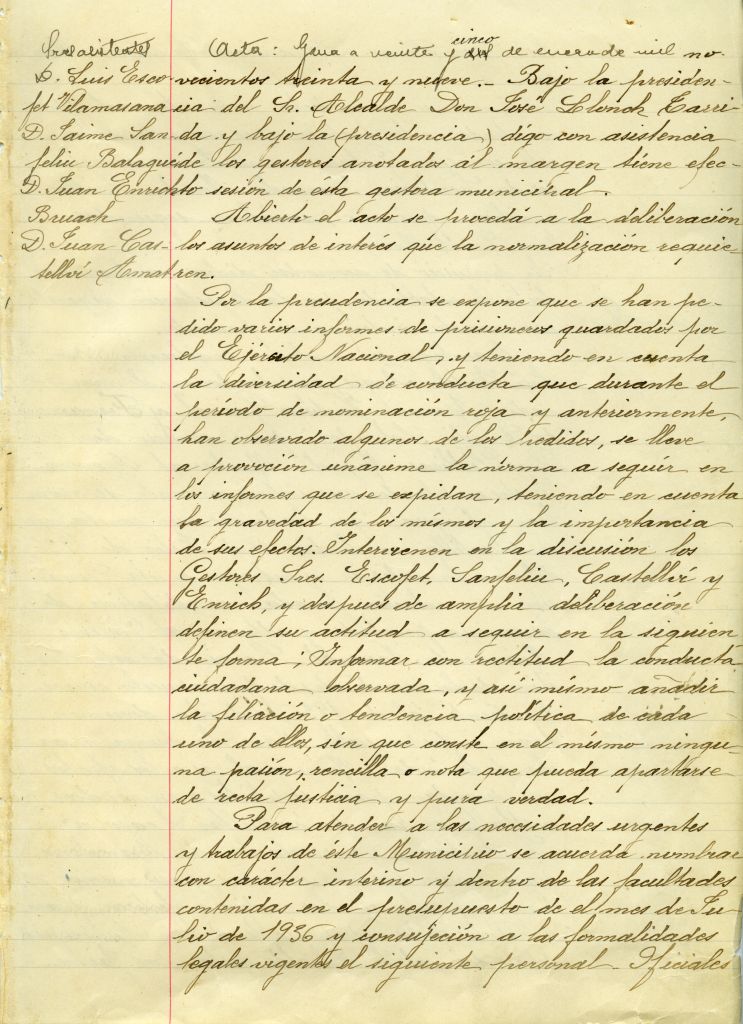 Sres asistentes
D. Luis Esco-
fet Vilamasana
D. Jaime San-
feliu Balagué
D. Juan Enrich
Bruach
D. Juan Cas-
tellví Amat
Acta: Gava a veinte y cinco de enero de mil no-
vecientos treinta y nueve.- Bajo la presiden-
cia del Sr. Alcalde Don José Llonch Carri-
da y bajo la (presidencia) digo con asistencia
de los gestores anotados ál margen tiene efec-
to sesión de ésta gestora municipal.
Abierto el acto se procedá a la deliberación
los asuntos de interés que la normalización requie-
ren.
Por la presidencia se expone que se han pe-
dido varios informes de prisioneros guardados por
el Ejército Nacional, y teniendo en cuenta
la diversidad de conducta que durante el
período de nominación roja y anteriormente,
han observado algunos de los pedidos, se lleve
a provoción unánime la norma a seguir en
los informes que se expidan, teniendo en cuenta
la gravedad de los mismos y la importancia
de sus efectos. Intervienen en la discusión los
Gestores Sres. Escofet, Sanfeliu, Castellví y
Enrich, y despues de amplia deliberación
definen su actitud a seguir en la siguien
te forma; Informar con rectitud la conducta
ciudadana observada, y así mismo añadir
la filiación o tendencia política de cada
uno de ellos, sin que conste en el mismo ningu-
na pasión, rencilla o nota que pueda apartarse
de recta justicia y pura verdad.
Para atender a las necesidades urgentes
y trabajos de éste Municipio se acuerda nombrar
con carácter interino y dentro de las facultades
contenidas en el presupuesto de el mes de Ju-
lio de 1936 y consujeción a las formalidades
legales vigentes el siguiente personal - Oficiales